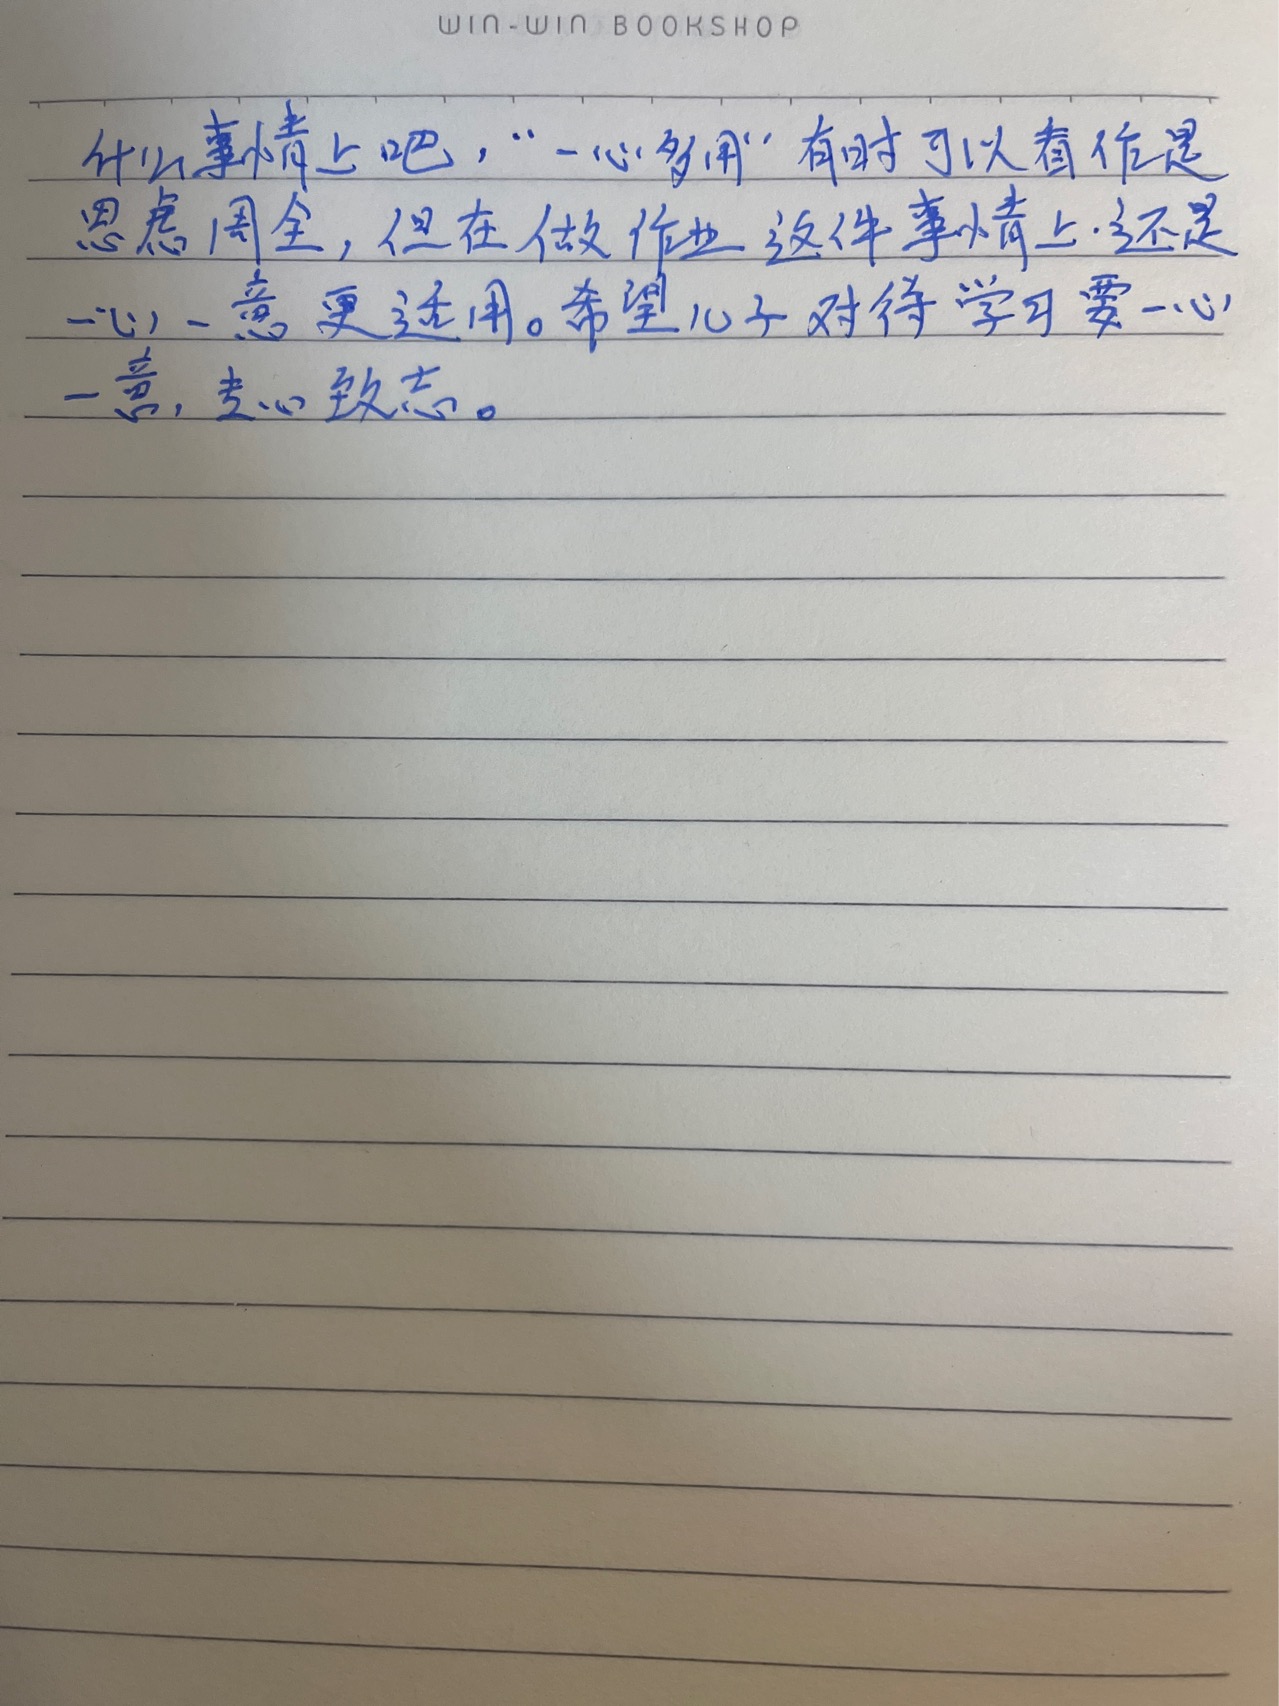 WIN-WIN BOOKSHOP
什么事情上吧，“一心多用”有时可以看作是
思虑周全，但在做作业这件事情上.还是
一心一意更适用。希望儿子对待学习要一心
一意，专心致志。